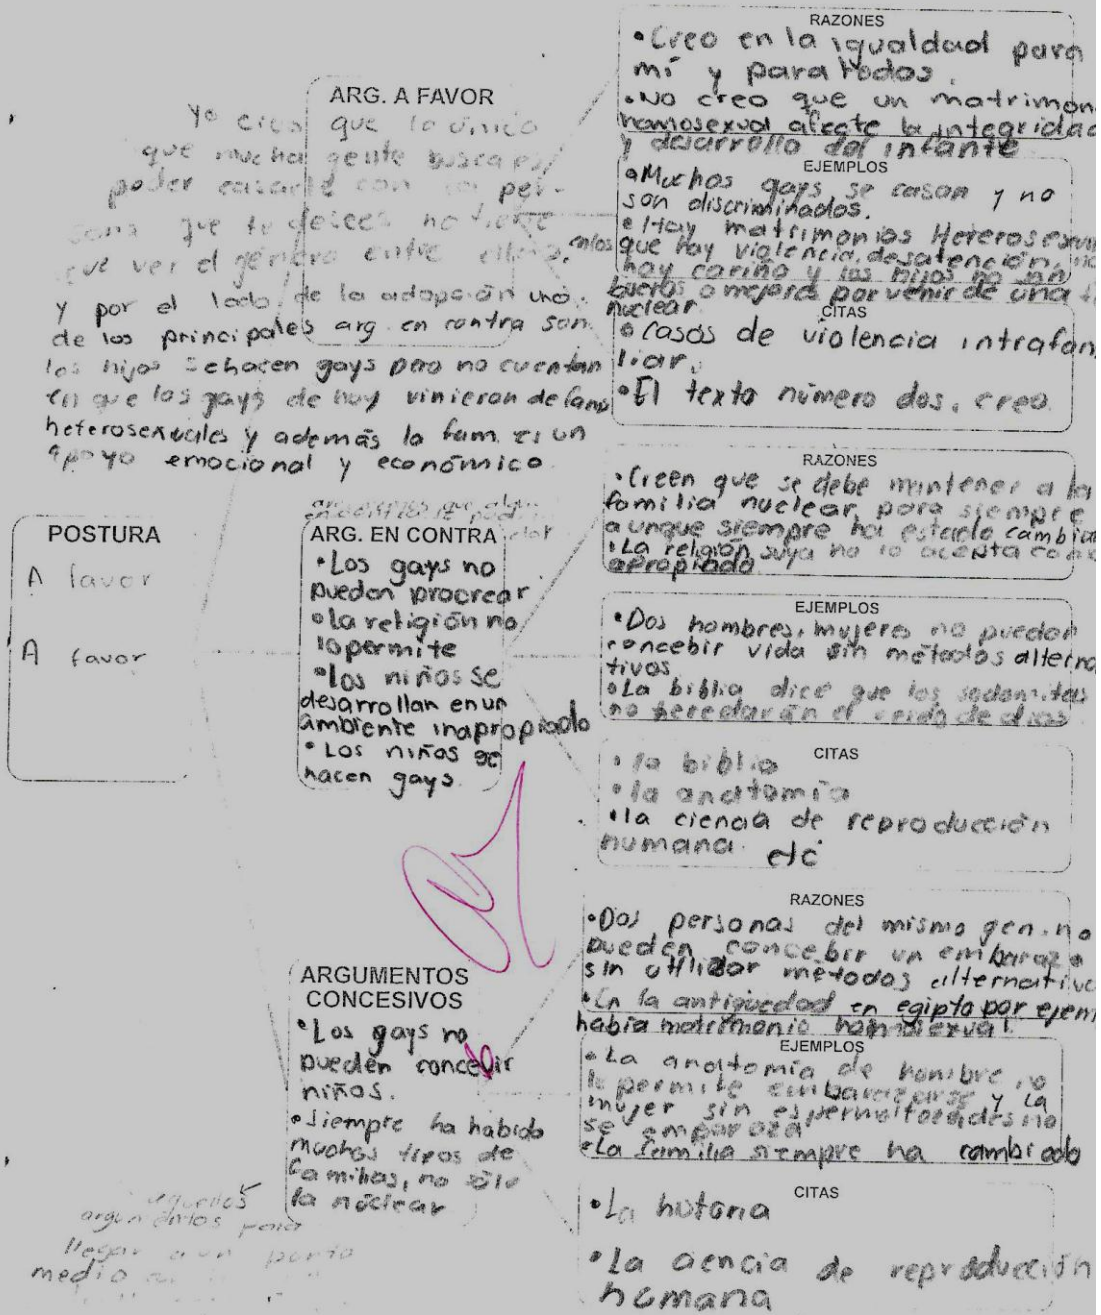 POSTURA
A favor
A favor
ARG. A FAVOR
Yo creo que lo único
que mucha gente busca es
poder casarse con la per-
sona que tu desees no tiene
que ver el género entre ellos.
y por el lado de la adopción uno
de los principales arg. en contra son
los hijos se hacen gays pero no cuentan
en que los gays de hoy vinieron de fam
heterosexuales y además la fam. es un
apoyo emocional y económico
RAZONES
•Creo en la igualdad para
mí y para todos.
•No creo que un matrimon
homosexual afecte la integridad
y desarrollo del infante
EJEMPLOS
•Muchos gays se casan y no
son discriminados.
•Hay matrimonios Heterosexu
en los que hay violencia, desatención, no
hay cariño y los hijos no son
buenos o mejores por venir de una f
nuclear.
CITAS
•Casos de violencia intrafam
liar.
•El texto número dos, creo.
ARG. EN CONTRA
•Los gays no
pueden procrear
•la religión no
lo permite
•los niños se
desarrollan en un
ambiente inapropiado
•Los niños se
hacen gays.
RAZONES
•Creen que se debe mantener a la
familia nuclear para siempre
aunque siempre ha estado cambia
•La religión suya no lo acepta como
apropiado
EJEMPLOS
•Dos hombres, mujeres no pueden
concebir vida sin métodos alterna
tivos
•La biblia dice que los sodomitas
no heredarán el reino de dios
CITAS
•la biblia
•la anatomía
•la ciencia de reproducción
humana. etc
ARGUMENTOS
CONCESIVOS
•Los gays no
pueden concevir
niños.
•Siempre ha habido
muchos tipos de
familias, no sólo
la núclear
RAZONES
•Dos personas del mismo gen. no
pueden concebir un embarazo
sin utilizar métodos alternativo
•En la antigüedad en egipto por ejem
había matrimonio homosexual.
EJEMPLOS
•La anatomía de hombre no
le permite embarazarse y la
mujer sin espermatozoides no
se embaraza
•La familia siempre ha cambiado
CITAS
•La historia
•La ciencia de reproducción
humana
argumentos para
llegar a un punto
medio